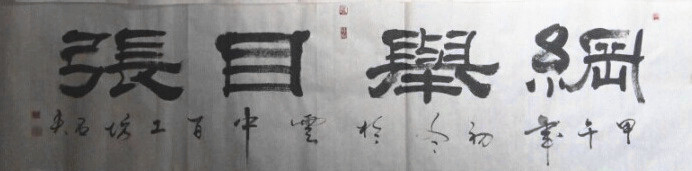 綱舉目張
甲午年初冬於雲中百工坊石夫